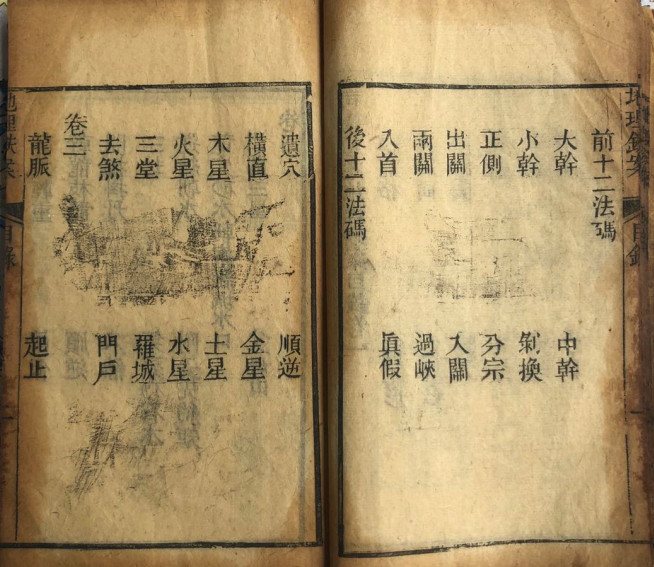 地理
目錄
前十二法碼
大幹 中幹
小幹 剝換
正側 分宗
出關 入關
兩關 過峽
入首 眞假
後十二法碼
遺穴 順逆
橫直 金星
木星 土星
火星 水星
三堂 羅城
去煞 門戶
卷三
龍脈 起止
地理
目錄